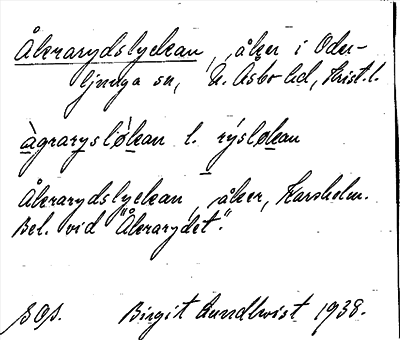 Åkrarydslyckan, åker i Oder-
ljunga sn, N. Åsbo hd, Krist. l.
àgraryslø̀kan l. rýsløkan
Åkrarydslyckan, åker, Karsholm.
Bel. vid "Åkrarydet".
SOS. Birgit Lundkvist 1938.